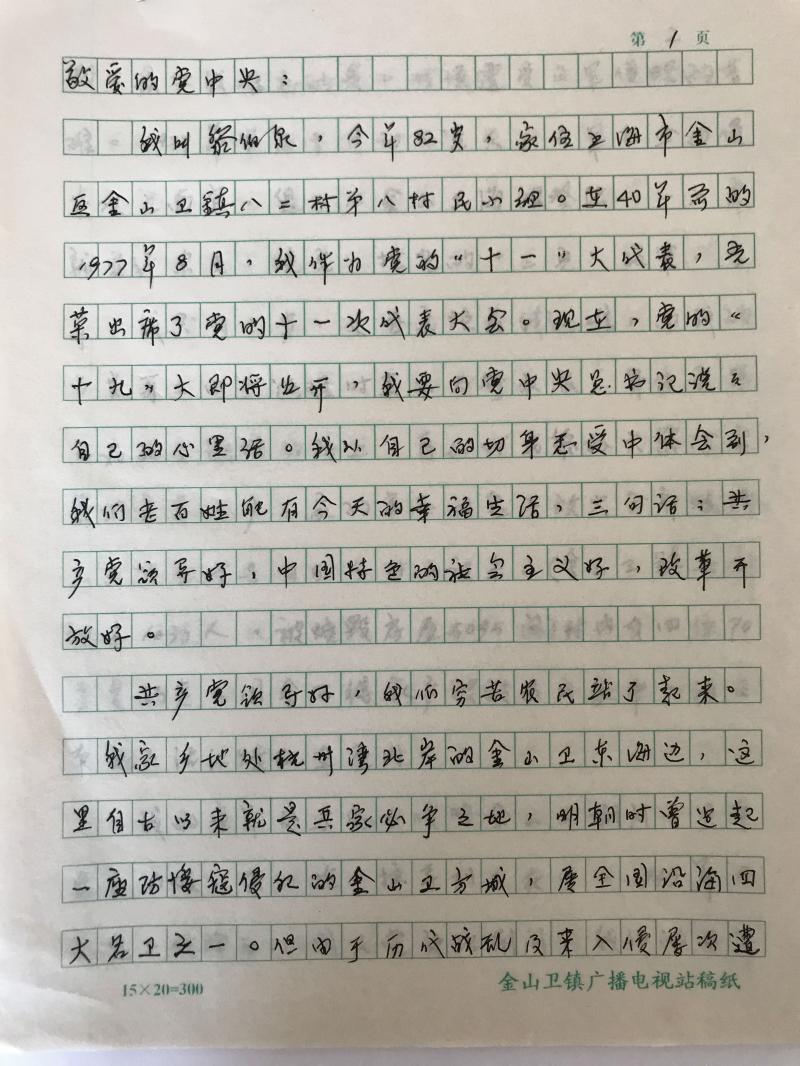 第 1 页
敬爱的党中央：
我叫 伯泉，今年82岁，家住上海市金山
区金山卫镇八二村第八村民小组。在40年前的
1977年8月，我作为党的“十一”大代表，光
荣出席了党的十一次代表大会。现在，党的“
十九”大即将召开，我要向党中央总书记说说
自己的心里话。我从自己的切身感受中体会到，
我们老百姓能有今天的幸福生活，三句话：共
产党领导好，中国特色的社会主义好，改革开
放好。
共产党领导好，我们穷苦农民站了起来。
我家乡地处杭州湾北岸的金山卫东海边，这
里自古以来就是兵家必争之地，明朝时曾造起
一座防倭寇侵犯的金山卫方城，属全国沿海四
大名卫之一。但由于历代战乱及来入侵屡次遭
15×20=300
金山卫镇广播电视站稿纸